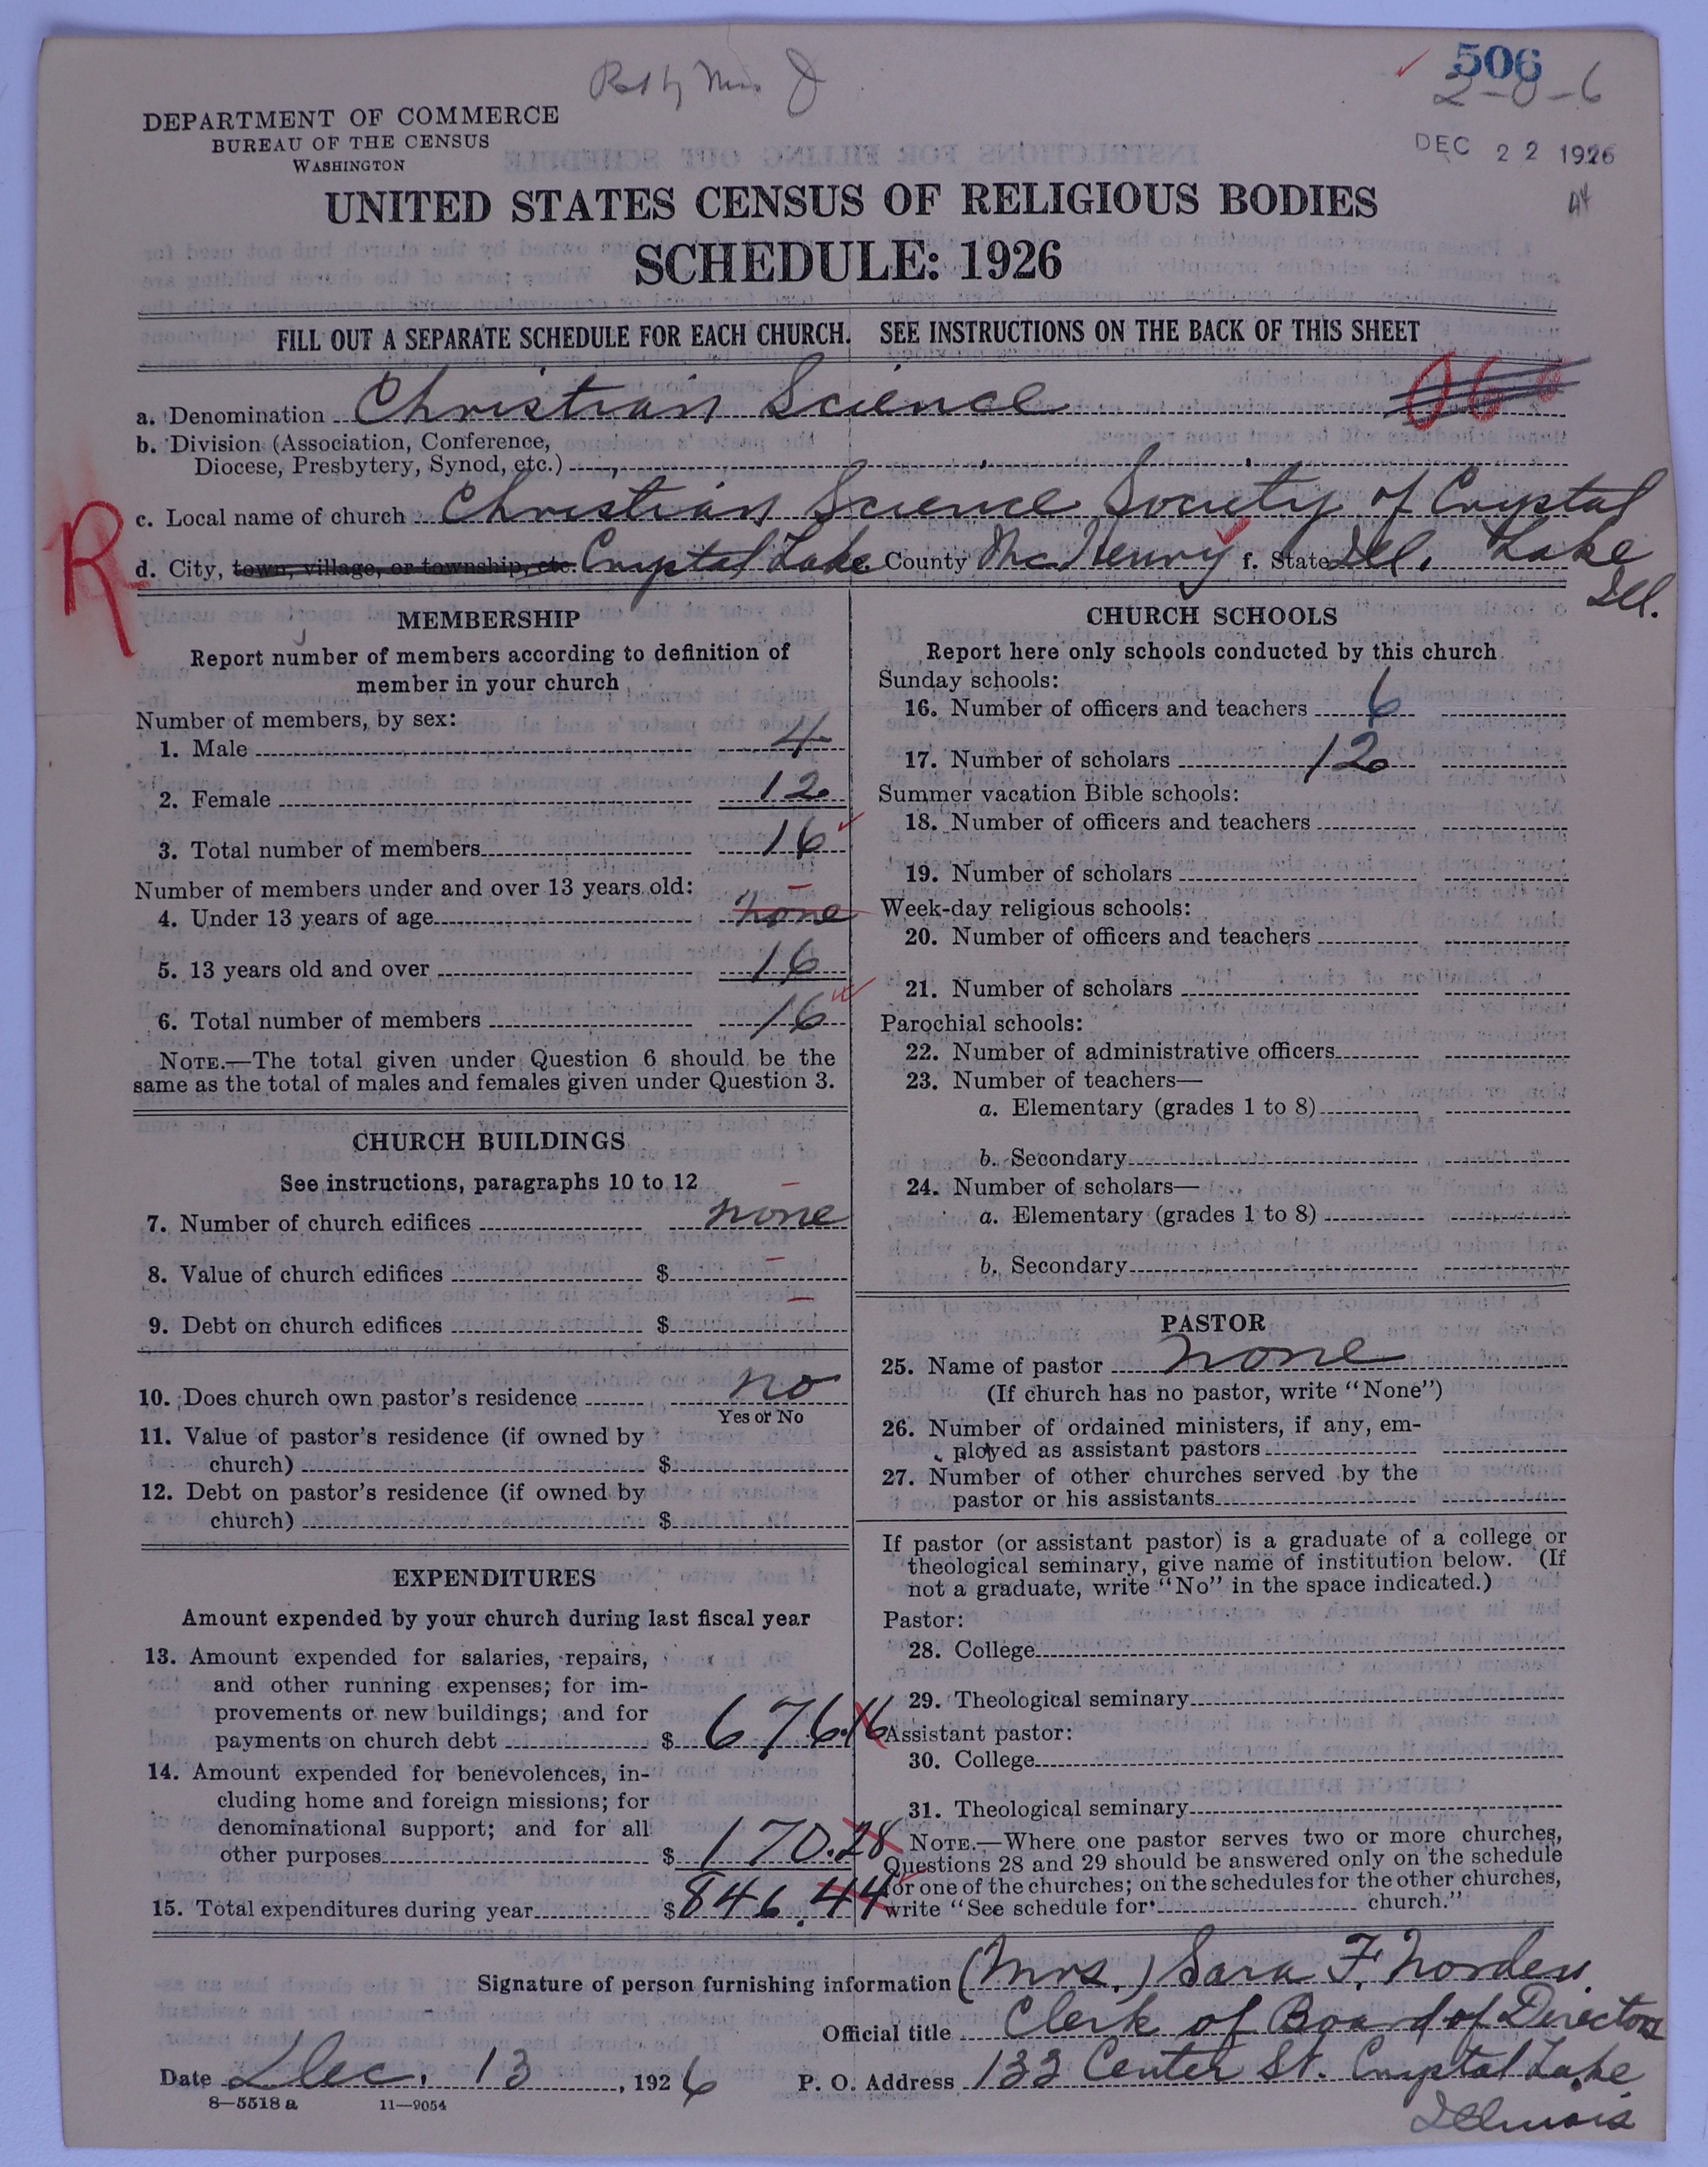 506
2-0-6
DEC 22 1926
DEPARTMENT OF COMMERCE
BUREAU OF THE CENSUS
WASHINGTON
UNITED STATES CENSUS OF RELIGIOUS BODIES
SCHEDULE: 1926
FILL OUT A SEPARATE SCHEDULE FOR EACH CHURCH. SEE INSTRUCTIONS ON THE BACK OF THIS SHEET
a. Denomination Christian Science
b. Division (Association, Conference,
Diocese, Presbytery, Synod, etc.)
R
c. Local name of church Christian Science Society of Crystal
Lake
Ill.
d. City, town, village, or township, etc. Crystal Lake County McHenry f. State Ill.
MEMBERSHIP
Report number of members according to definition of
member in your church
Number of members, by sex:
1. Male 4
2. Female 12
3. Total number of members 16
Number of members under and over 13 years old:
4. Under 13 years of age none
5. 13 years old and over 16
6. Total number of members 16
NOTE.—The total given under Question 6 should be the
same as the total of males and females given under Question 3.
CHURCH BUILDINGS
See instructions, paragraphs 10 to 12
7. Number of church edifices none
8. Value of church edifices $
9. Debt on church edifices $
10. Does church own pastor's residence no
Yes or No
11. Value of pastor's residence (if owned by
church) $
12. Debt on pastor's residence (if owned by
church) $
EXPENDITURES
Amount expended by your church during last fiscal year
13. Amount expended for salaries, repairs,
and other running expenses; for im-
provements or new buildings; and for
payments on church debt $ 676.16
14. Amount expended for benevolences, in-
cluding home and foreign missions; for
denominational support; and for all
other purposes $ 170.28
15. Total expenditures during year $ 846.44
CHURCH SCHOOLS
Report here only schools conducted by this church
Sunday schools:
16. Number of officers and teachers 6
17. Number of scholars 12
Summer vacation Bible schools:
18. Number of officers and teachers
19. Number of scholars
Week-day religious schools:
20. Number of officers and teachers
21. Number of scholars
Parochial schools:
22. Number of administrative officers
23. Number of teachers—
a. Elementary (grades 1 to 8)
b. Secondary
24. Number of scholars—
a. Elementary (grades 1 to 8)
b. Secondary
PASTOR
25. Name of pastor none
(If church has no pastor, write "None")
26. Number of ordained ministers, if any, em-
ployed as assistant pastors
27. Number of other churches served by the
pastor or his assistants
If pastor (or assistant pastor) is a graduate of a college or
theological seminary, give name of institution below. (If
not a graduate, write "No" in the space indicated.)
Pastor:
28. College
29. Theological seminary
Assistant pastor:
30. College
31. Theological seminary
NOTE.—Where one pastor serves two or more churches,
Questions 28 and 29 should be answered only on the schedule
for one of the churches; on the schedules for the other churches,
write "See schedule for church."
Signature of person furnishing information (Mrs.) Sara F. Norden
Official title Clerk of Board of Directors
Date Dec. 13, 1926 P. O. Address 133 Center St. Crystal Lake
Illinois
8—5518 a 11—9054